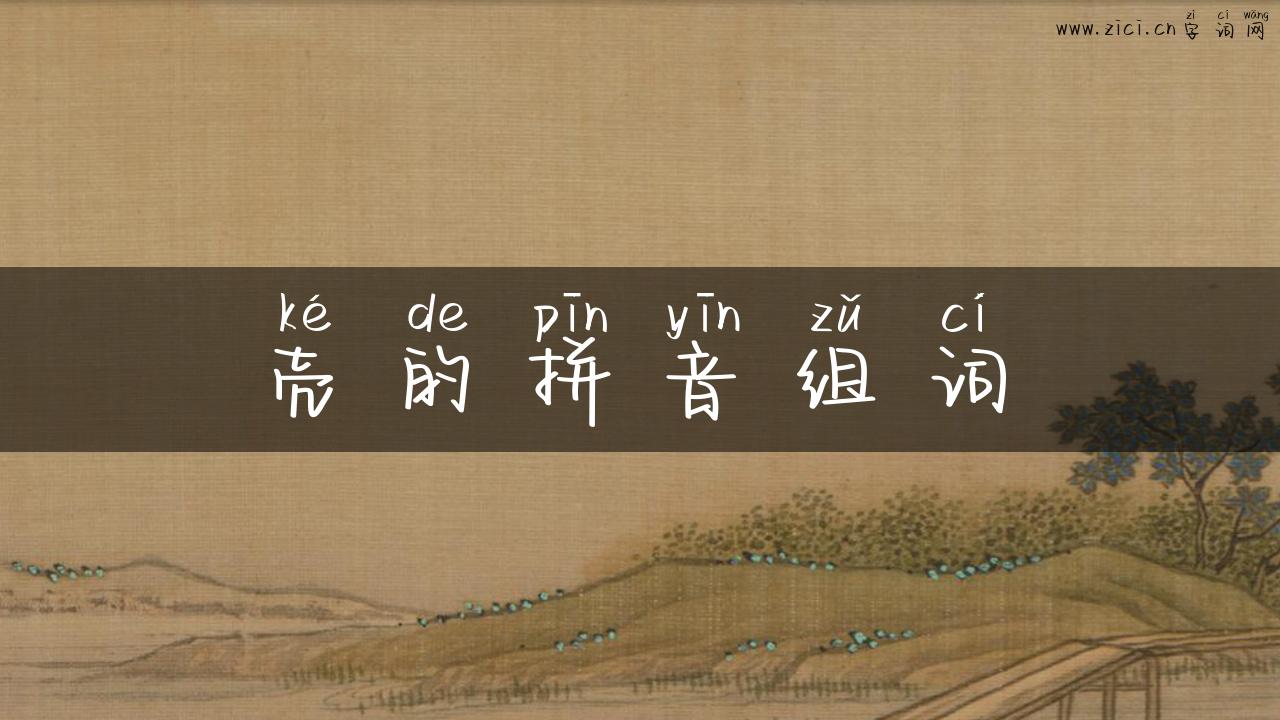 zì cí wǎng
www.zici.cn 字词网
ké de pīn yīn zǔ cí
壳的拼音组词